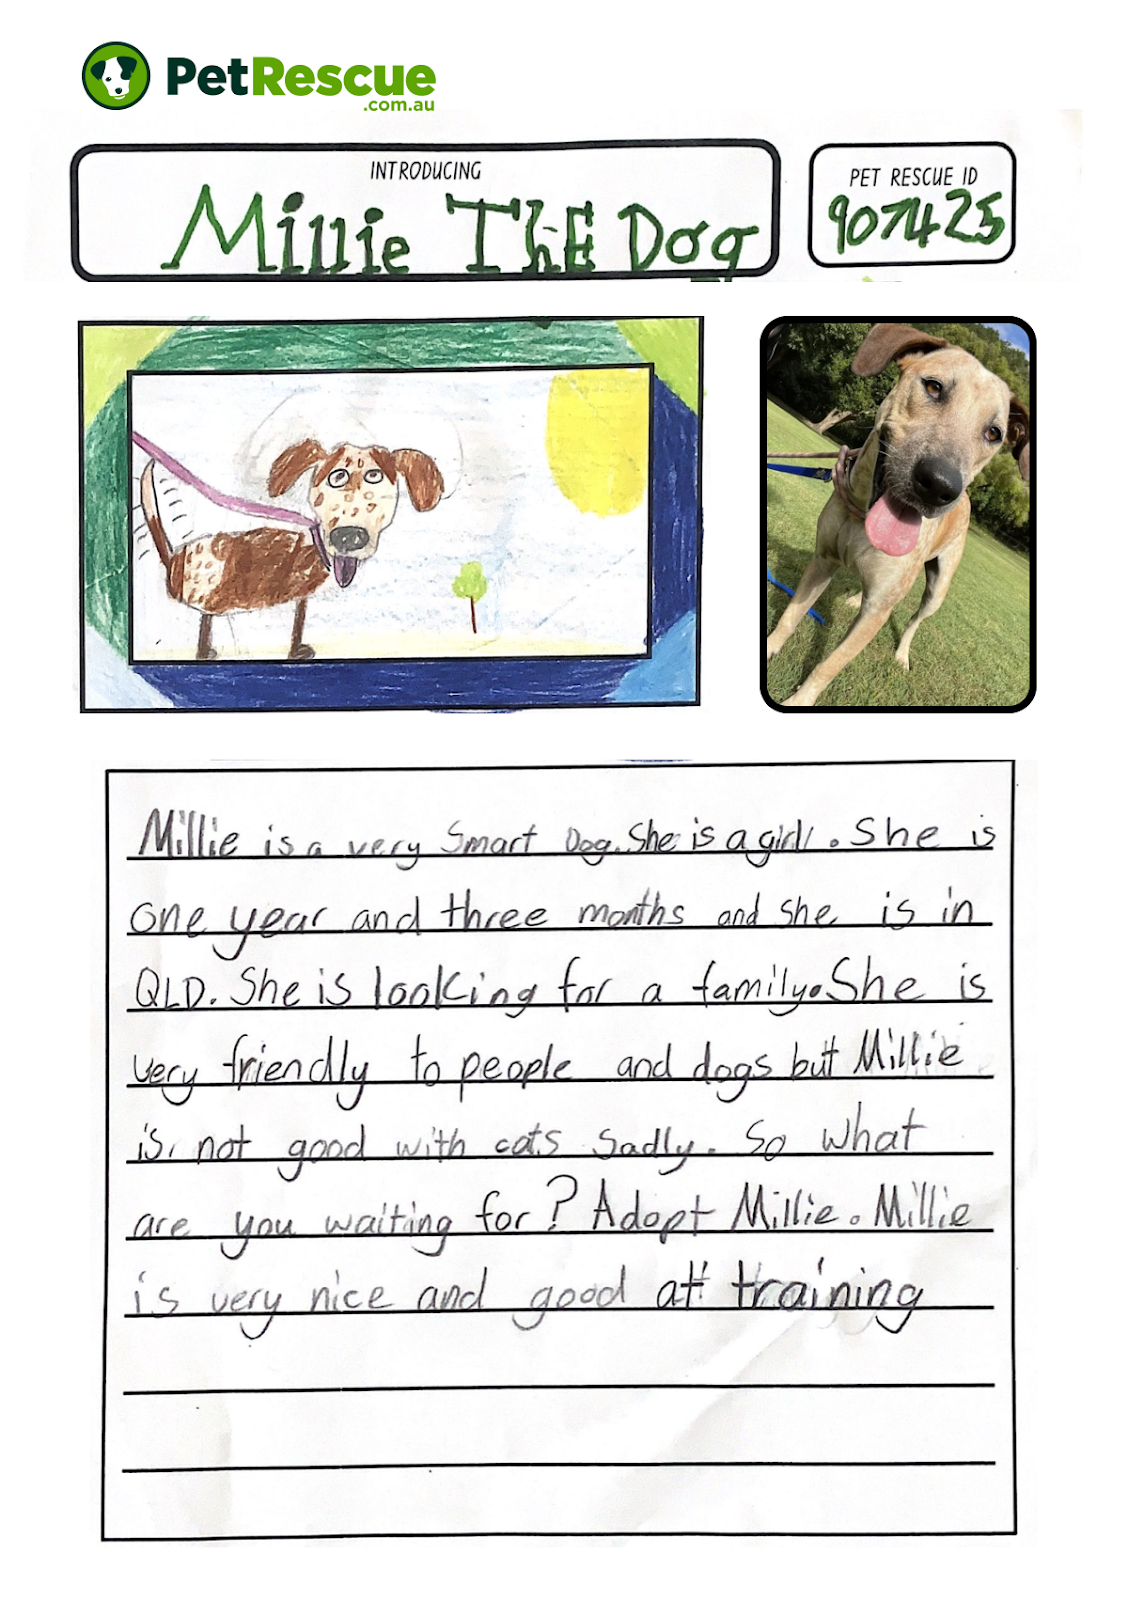 PetRescue
.com.au
INTRODUCING
Millie ThE Dog
PET RESCUE ID
907425
Millie is a very Smart Dog. She is a girl. She is
one year and three months and she is in
QLD. She is looking for a family. She is
very friendly to people and dogs but Millie
is not good with cats Sadly. So what
are you waiting for? Adopt Millie. Millie
is very nice and good at training